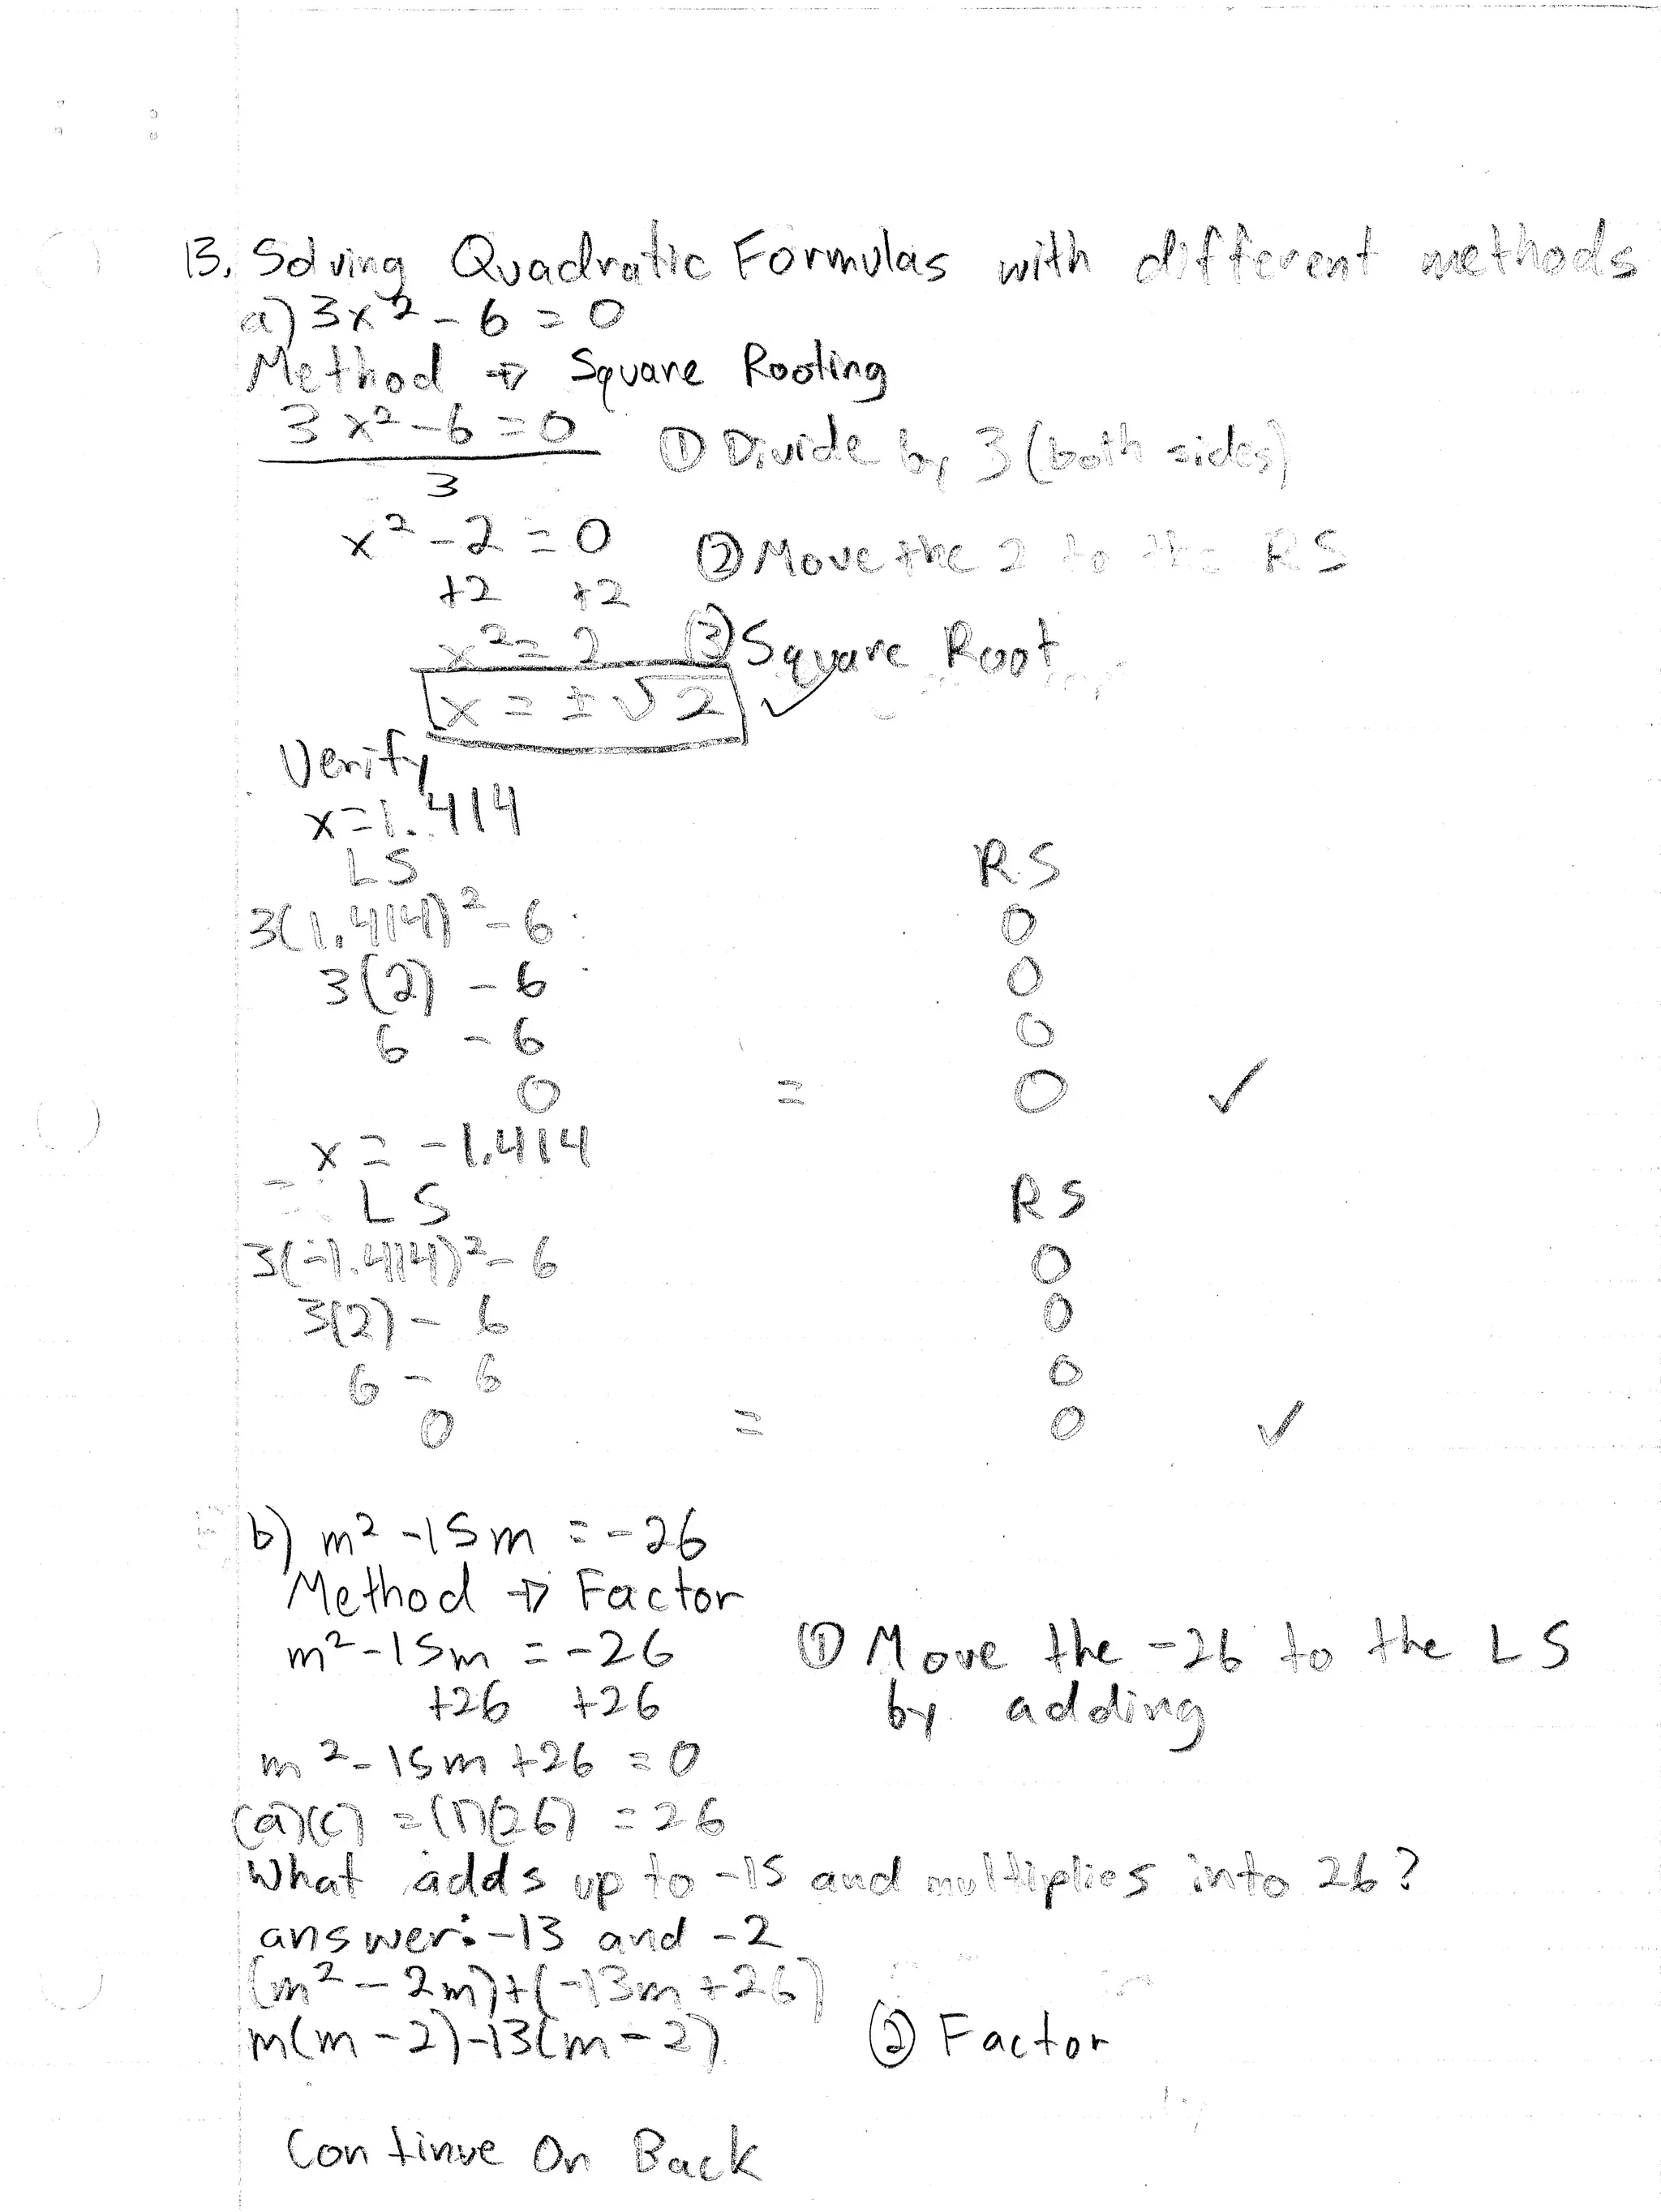 13. Solving Quadratic Formulas with different methods
a) 3x² - 6 = 0
Method → Square Rooting
3x² - 6 = 0 ① Divide by 3 (both sides)
3
x² - 2 = 0 ② Move the 2 to the RS
+2 +2
x² = 2 ③ Square Root
x = ± √2 ✓
Verify
x = 1.414
LS RS
3(1.414)² - 6 0
3(2) - 6 0
6 - 6 0
0 = 0 ✓
x = -1.414
LS RS
3(-1.414)² - 6 0
3(2) - 6 0
6 - 6 0
0 = 0 ✓
b) m² - 15m = -26
Method → Factor
m² - 15m = -26 ① Move the -26 to the LS
+26 +26 by adding
m² - 15m + 26 = 0
(a)(c) = (1)(26) = 26
What adds up to -15 and multiplies into 26?
answer: -13 and -2
(m² - 2m) + (-13m + 26)
m(m - 2) - 13(m - 2) ② Factor
Continue On Back